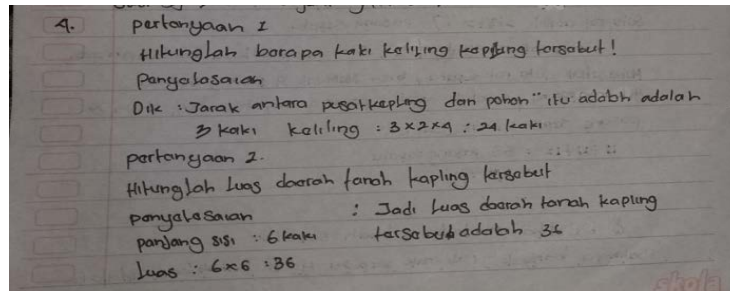 4. pertanyaan 1
Hitunglah berapa kaki keliling kapling tersebut!
Penyelesaian
Dik : Jarak antara pusat kapling dan pohon" itu adalah adalah
3 kaki keliling : 3×2×4 : 24 kaki
pertanyaan 2.
Hitunglah luas daerah tanah kapling tersebut
penyelesaian : Jadi luas daerah tanah kapling
panjang sisi : 6 kaki tersebut adalah 36
Luas : 6×6 : 36
skola